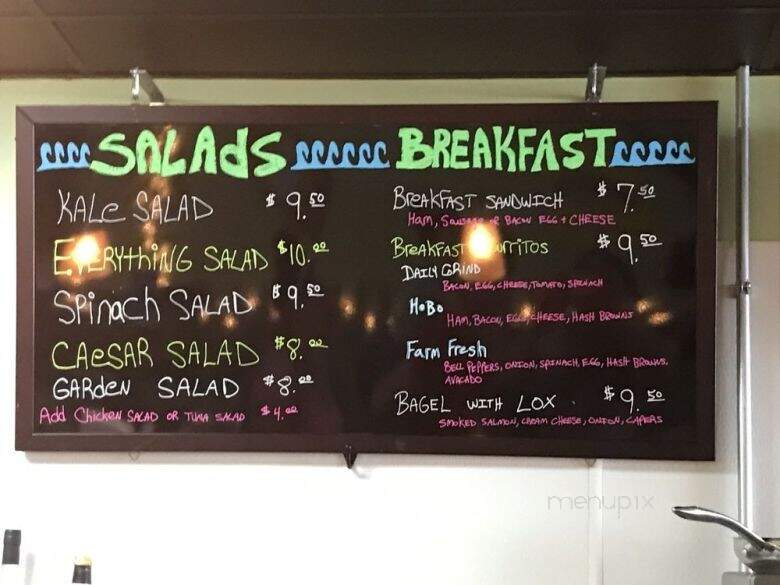 SALAdS
KALe SALAD $9.50
EVERYthiNG SALAD $10.00
SPinach SALAD $9.50
CAeSAR SALAD $8.00
GARdeN SALAD $8.00
Add Chicken SALAD OR TUNA SALAD $4.00
BREAKFAST
BREAKFAST SANDWICH $7.50
Ham, Sausage OR BACON EGG + CHEESE
BREAKFAST BURRITOS $9.50
DAILY GRIND
BACON, EGG, CHEESE, TOMATO, SPINACH
HoBo
HAM, BACON, EGG, CHEESE, HASH BROWNS
Farm Fresh
BELL PEPPERS, ONION, SPINACH, EGG, HASH BROWNS,
AVACADO
BAGEL WITH LOX $9.50
SMOKED SALMON, CREAM CHEESE, ONION, CAPERS
menupix